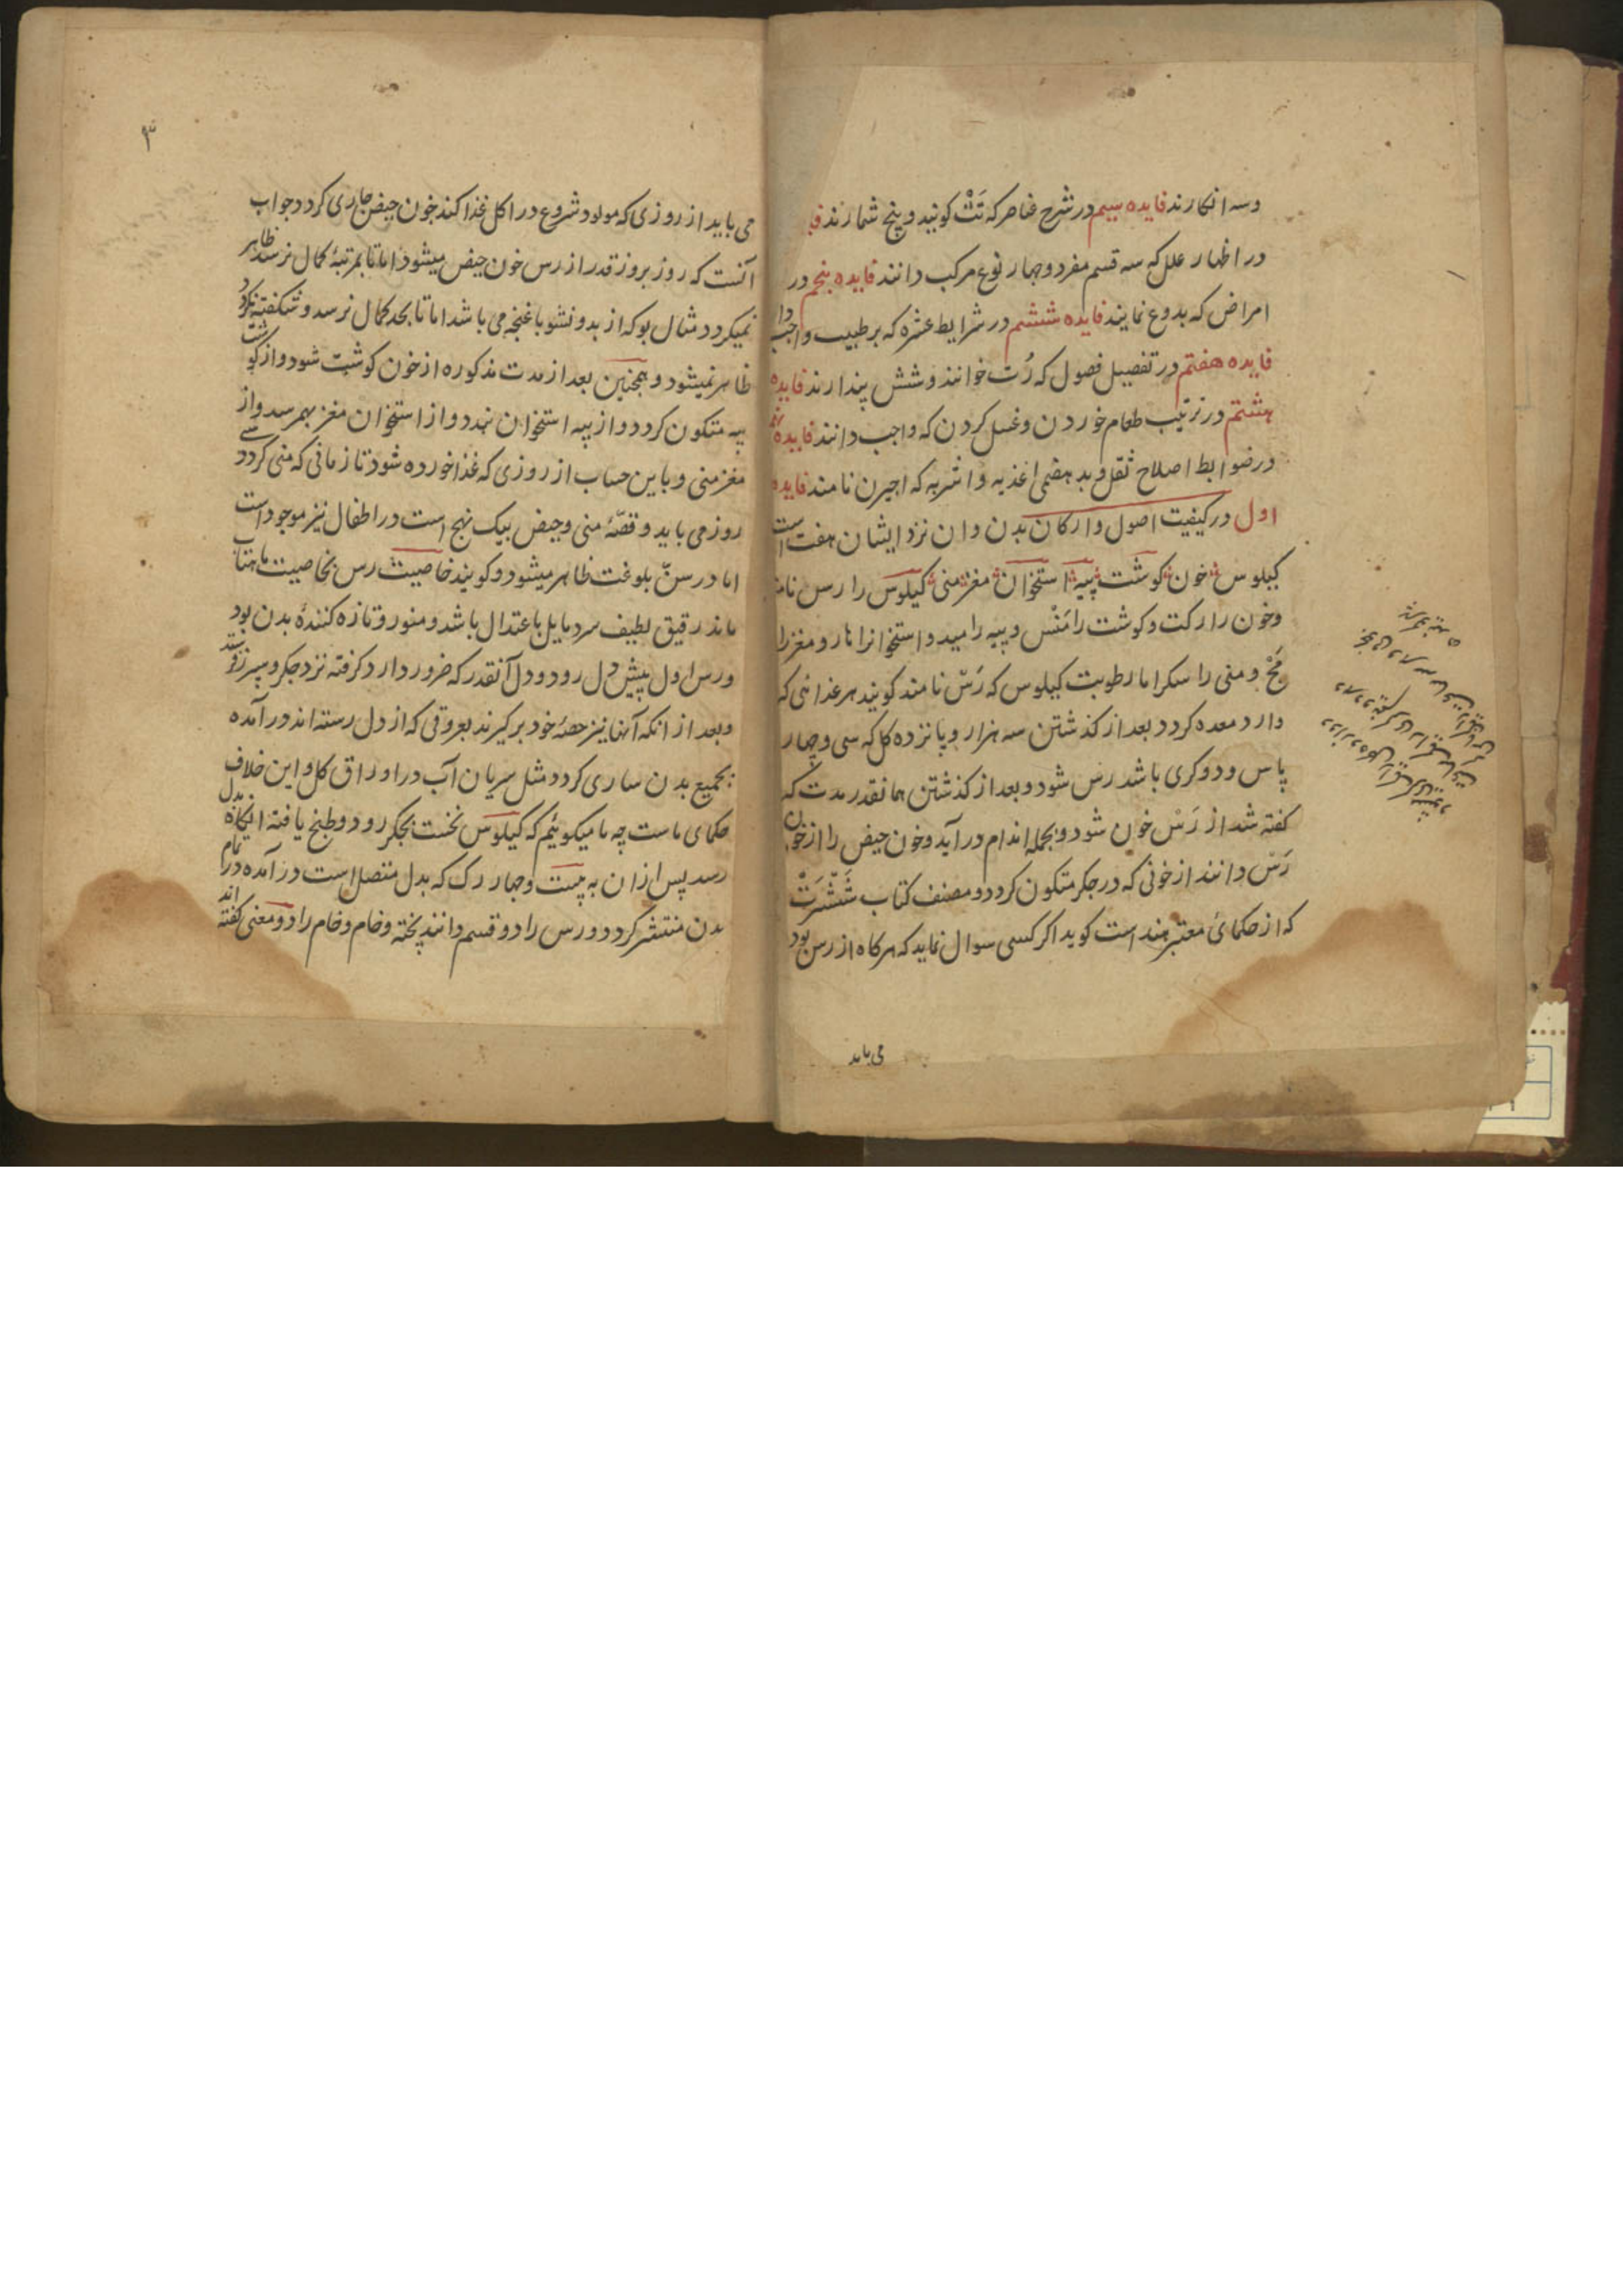 وسه انکارند فایده سیم در شرح عناصر که تَتْ کویند و پنج شمارند
در اظهار علل که سه قسم مفرد و چهار نوع مرکب دانند فایده پنجم در
امراض که بدوع نمایند فایده ششم در شرایط عشره که بر طبیب واجب دا
فایده هفتم در تفصیل فصول که رُت خوانند و شش پندارند فایده
هشتم در ترتیب طعام خوردن و غسل کردن که واجب دانند فایده نهم
در ضوابط اصلاح ثقل و بد هضمی اغذیه و اشربه که اجیرن نامند فایده
اول در کیفیت اصول و ارکان بدن و ان نزد ایشان هفت است
کیلوس خون کوشت پیه استخوان مغز منی کیلوس را رس نامند
وخون را رکت و کوشت را مَنْس و پیه را مید و استخوانرا نار و مغز را
مَخْ و منی را سکر اما رطوبت کیلوس که رَسْ نامند کویند هر غذائی که
دارد معده کردد بعد از کذشتن سه هزار و پانزده کل که سی و چهار
پاس و دو کری باشد رس شود و بعد از کذشتن همانقدر مدت که
کفته شد از رَسْ خون شود و بجمله اندام در آید و خون حیض را از خون
رَسْ دانند از خونی که در جکر متکون کردد و مصنف کتاب شَشْرَتْ
که از حکمای معتبر هند است کوید اکر کسی سوال نماید که هرکاه از رس بود
می باید
می باید از روزی که مولود شروع در اکل غذا کند خون حیض جاری کردد جواب
آنست که روز بروز قدر از رس خون حیض میشود اما تا بمرتبهٔ کمال نرسد ظاهر
نمیکردد مثال بو که از بدو نشو با غنچه می باشد اما تا بحد کمال نرسد و شکفته نکردد
ظاهر نمیشود و همچنین بعد از مدت مذکوره از خون کوشت شود و از کوشت
پیه متکون کردد و از پیه استخوان بندد و از استخوان مغز بهم رسد و از
مغز منی و باین حساب از روزی که غذا خورده شود تا زمانی که منی کردد سی
روز می باید و قصّهٔ منی و حیض بیک نهج است در اطفال نیز موجود است
اما در سنّ بلوغت ظاهر میشود و کویند خاصیت رس بخاصیت ماهتاب
ماند رقیق لطیف سرد مایل باعتدال باشد و منور و تازه کنندهٔ بدن بود
ورس اول پیش دل رود و دل آنقدر که ضرور دارد کرفته نزد جکر و سپرز فرستد
وبعد از انکه آنها نیز حصهٔ خود برکیرند بعروقی که از دل رسته اند در آمده
بجمیع بدن ساری کردد مثل سریان آب در اوراق کل و این خلاف
حکمای ماست چه ما میکوئیم که کیلوس نخست بجکر رود و طبخ یافته انکاه بدل
رسد پس ازان به بیست و چهار رک که بدل متصل است در آمده در تمام
بدن منتشر کردد و رس را دو قسم دانند پخته و خام و خام را دو معنی کفته اند
۳